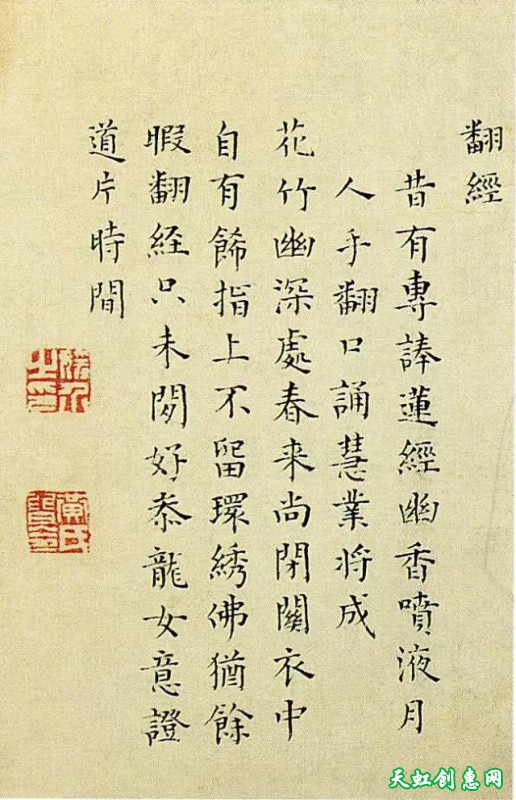 翻經
昔有專蓮經幽香噴液月
人手翻口誦慧業將成
花竹幽深處春来尚閉關衣中
自有餙指上不留環綉佛猶餘
暇翻経只未好叅龍女意證
道片時間
黃氏
天虹创惠网